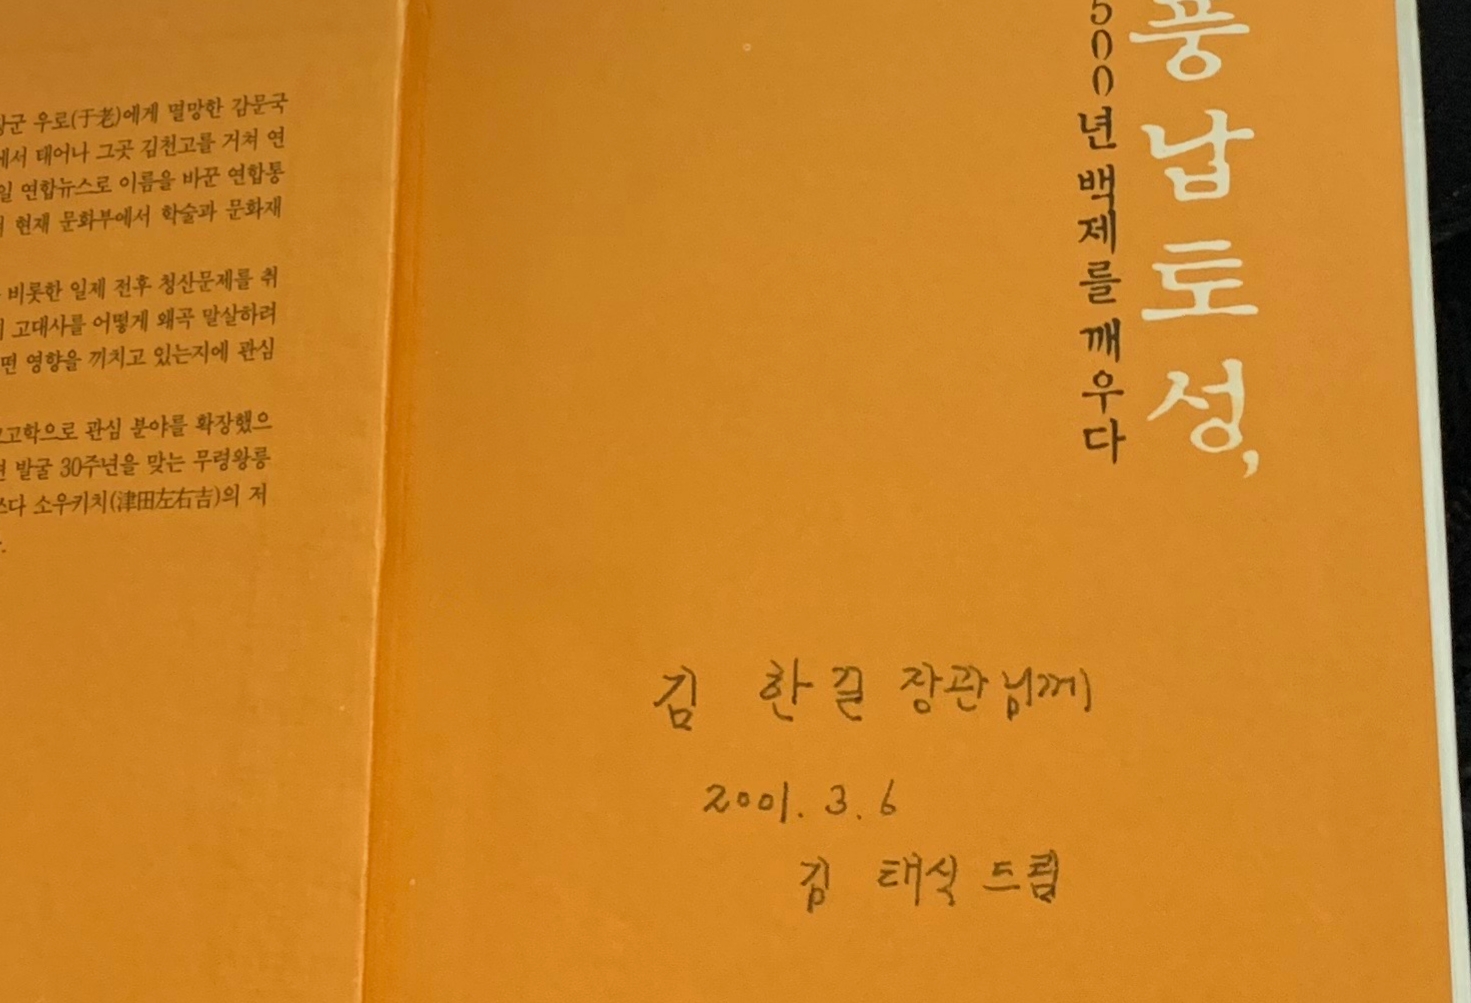 장군 우로(于老)에게 멸망한 감문국
에서 태어나 그곳 김천고를 거쳐 연
일 연합뉴스로 이름을 바꾼 연합통
현재 문화부에서 학술과 문화재
비롯한 일제 전후 청산문제를 취
고대사를 어떻게 왜곡 말살하려
떤 영향을 끼치고 있는지에 관심
고고학으로 관심 분야를 확장했으
발굴 30주년을 맞는 무령왕릉
쓰다 소우키치(津田左右吉)의 저
풍납토성,
500년 백제를 깨우다
김 한길 장관님께
2001. 3. 6
김 태식 드림